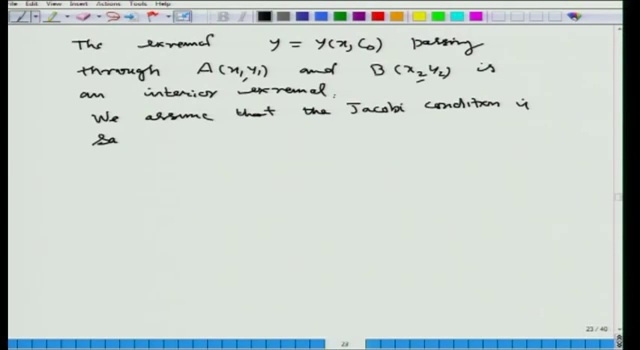 File View Insert Actions Tools Help
The extremal y = y(x, c₀) passing
through A(x₁, y₁) and B(x₂, y₂) is
an interior extremal.
We assume that the Jacobi condition is
Sa
23 / 40
23